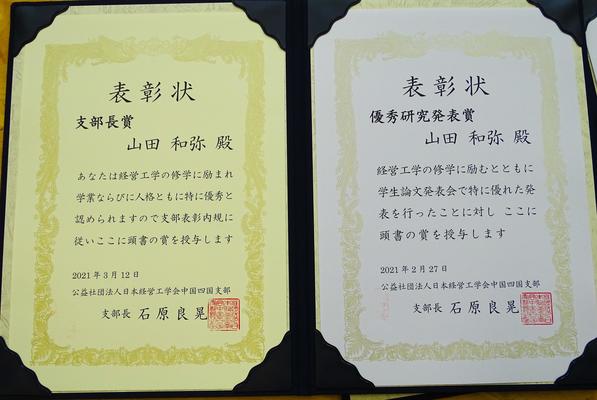 表彰状
支部長賞
山田 和弥 殿
あなたは経営工学の修学に励まれ
学業ならびに人格ともに特に優秀と
認められますので支部表彰内規に
従いここに頭書の賞を授与します
2021年3月12日
公益社団法人日本経営工学会中国四国支部
支部長 石原良晃
表彰状
優秀研究発表賞
山田 和弥 殿
経営工学の修学に励むとともに
学生論文発表会で特に優れた発
表を行ったことに対し ここに
頭書の賞を授与します
2021年2月27日
公益社団法人日本経営工学会中国四国支部
支部長 石原良晃